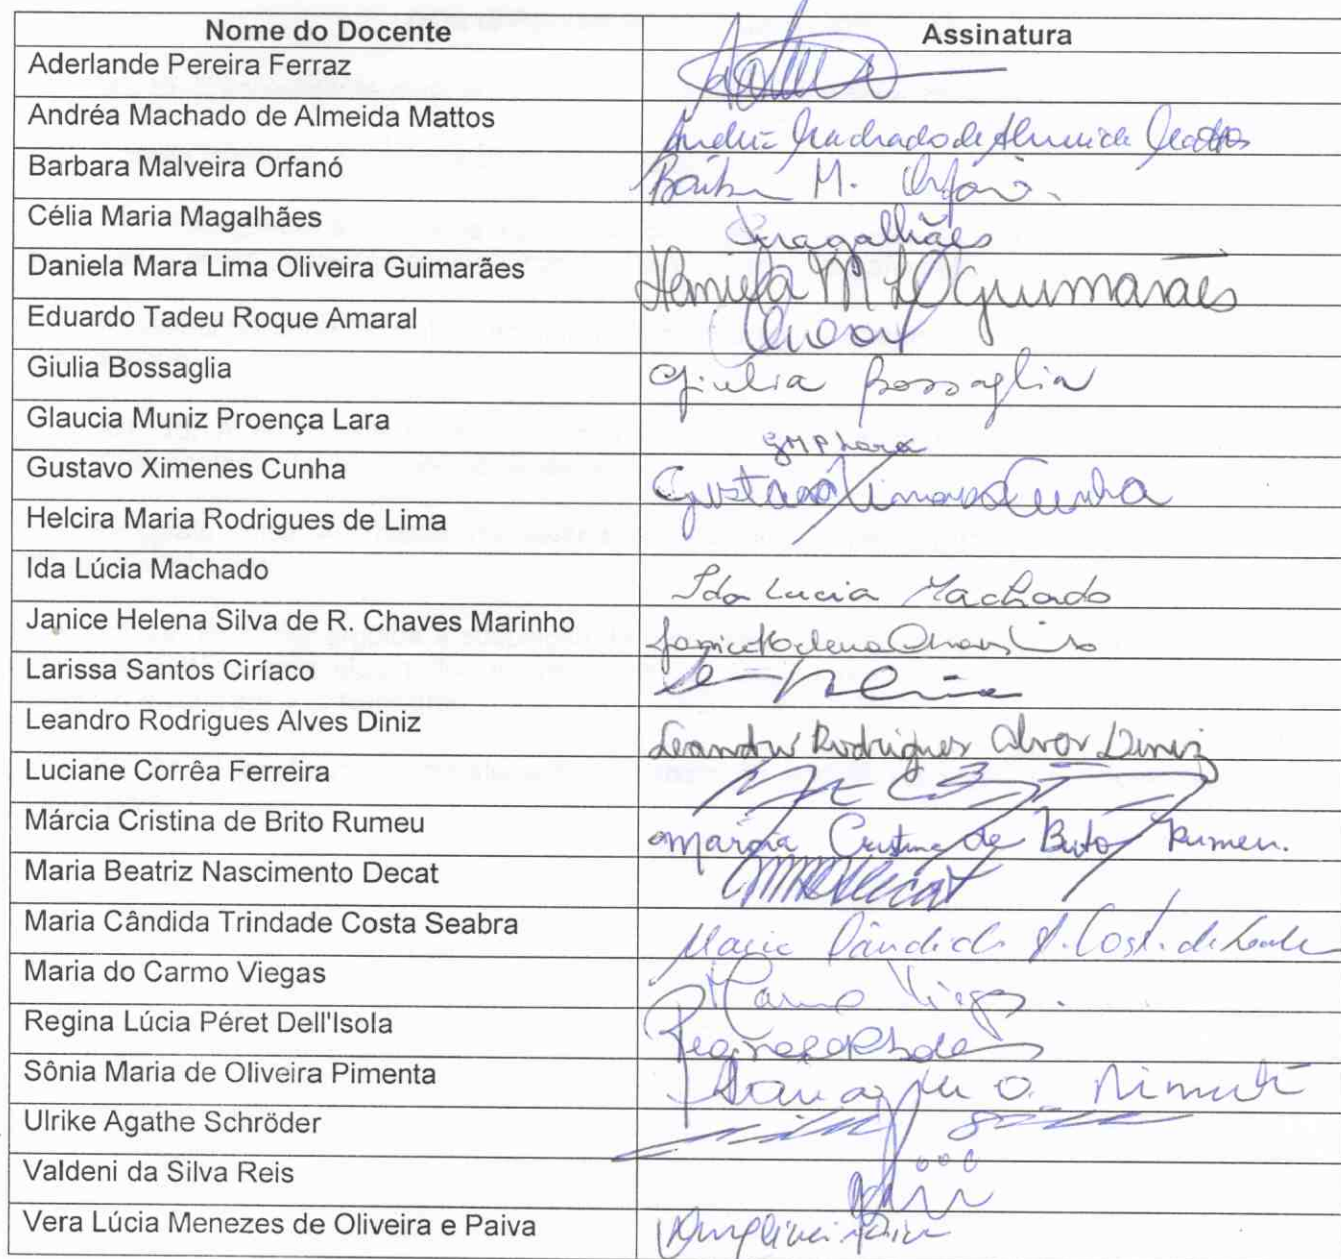 Nome do Docente Assinatura
Aderlande Pereira Ferraz
Andréa Machado de Almeida Mattos Andréa Machado de Almeida Mattos
Barbara Malveira Orfanó Barbara M. Orfanó.
Célia Maria Magalhães Cmagalhães
Daniela Mara Lima Oliveira Guimarães Daniela M L O Guimarães
Eduardo Tadeu Roque Amaral
Giulia Bossaglia Giulia Bossaglia
Glaucia Muniz Proença Lara GMPLara
Gustavo Ximenes Cunha Gustavo Ximenes Cunha
Helcira Maria Rodrigues de Lima
Ida Lúcia Machado Ida Lucia Machado
Janice Helena Silva de R. Chaves Marinho Janice Helena Chaves
Larissa Santos Ciríaco
Leandro Rodrigues Alves Diniz Leandro Rodrigues Alves Diniz
Luciane Corrêa Ferreira
Márcia Cristina de Brito Rumeu Márcia Cristina de Brito Rumeu.
Maria Beatriz Nascimento Decat
Maria Cândida Trindade Costa Seabra Maria Cândida T. Costa de
Maria do Carmo Viegas Carmo Viegas.
Regina Lúcia Péret Dell'Isola
Sônia Maria de Oliveira Pimenta Sônia M. O. Pimenta
Ulrike Agathe Schröder
Valdeni da Silva Reis
Vera Lúcia Menezes de Oliveira e Paiva